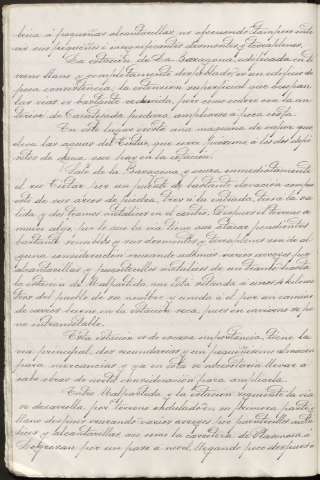 á pequeñas alcantarillas, no ofreciendo tampoco interés sus pequeños é insignificantes desmontes y terraplenes.
La estación de La Bazagona, edificada en terreno llano y completamente despoblado, es un edificio de poca consistencia; la extensión superficial que ocupan las vías es bastante reducida, pero como sobre ella hay un trozo de Carretera pudiera ampliarse á poca costa.
En este lugar existe una máquina de vapor que eleva las aguas del Tiétar, que corre próximo á los dos depósitos de agua que hay en la estación.
Sale de la Bazagona y cruza inmediatamente el río Tiétar por un puente de bastante elevación compuesto de arcos de piedra, tres á la entrada, tres á la salida, y dos tramos metálicos en el centro. Después el terreno es
muy bajo, por lo que la vía tiene que atacar pendientes
bastante sensibles y sus desmontes y terraplenes son de alguna consideración cruzando además varios arroyos por alcantarillas y puentecillos metálicos de un tramo, hasta
la estación de Malpartida, que está situada á unos 4 kilómetros del pueblo de su nombre y unida á él por un camino
de carros bueno en la estación seca, pues en invierno se pone intransitable.
Esta estación es de escasa importancia. Tiene la
vía principal, dos secundarias y un pequeñísimo almacén
para mercancías y ya en ésta se necesitaría llevar á
cabo obras de cierta consideración para ampliarla.
Entre Malpartida y la estación siguiente la vía
se desarrolla por terreno ondulado en su primera parte y
llano después cruzando varios arroyos por puentecillos metálicos y alcantarillas así como la carretera de Plasencia á
Logrosán por un paso á nivel, llegando poco después á